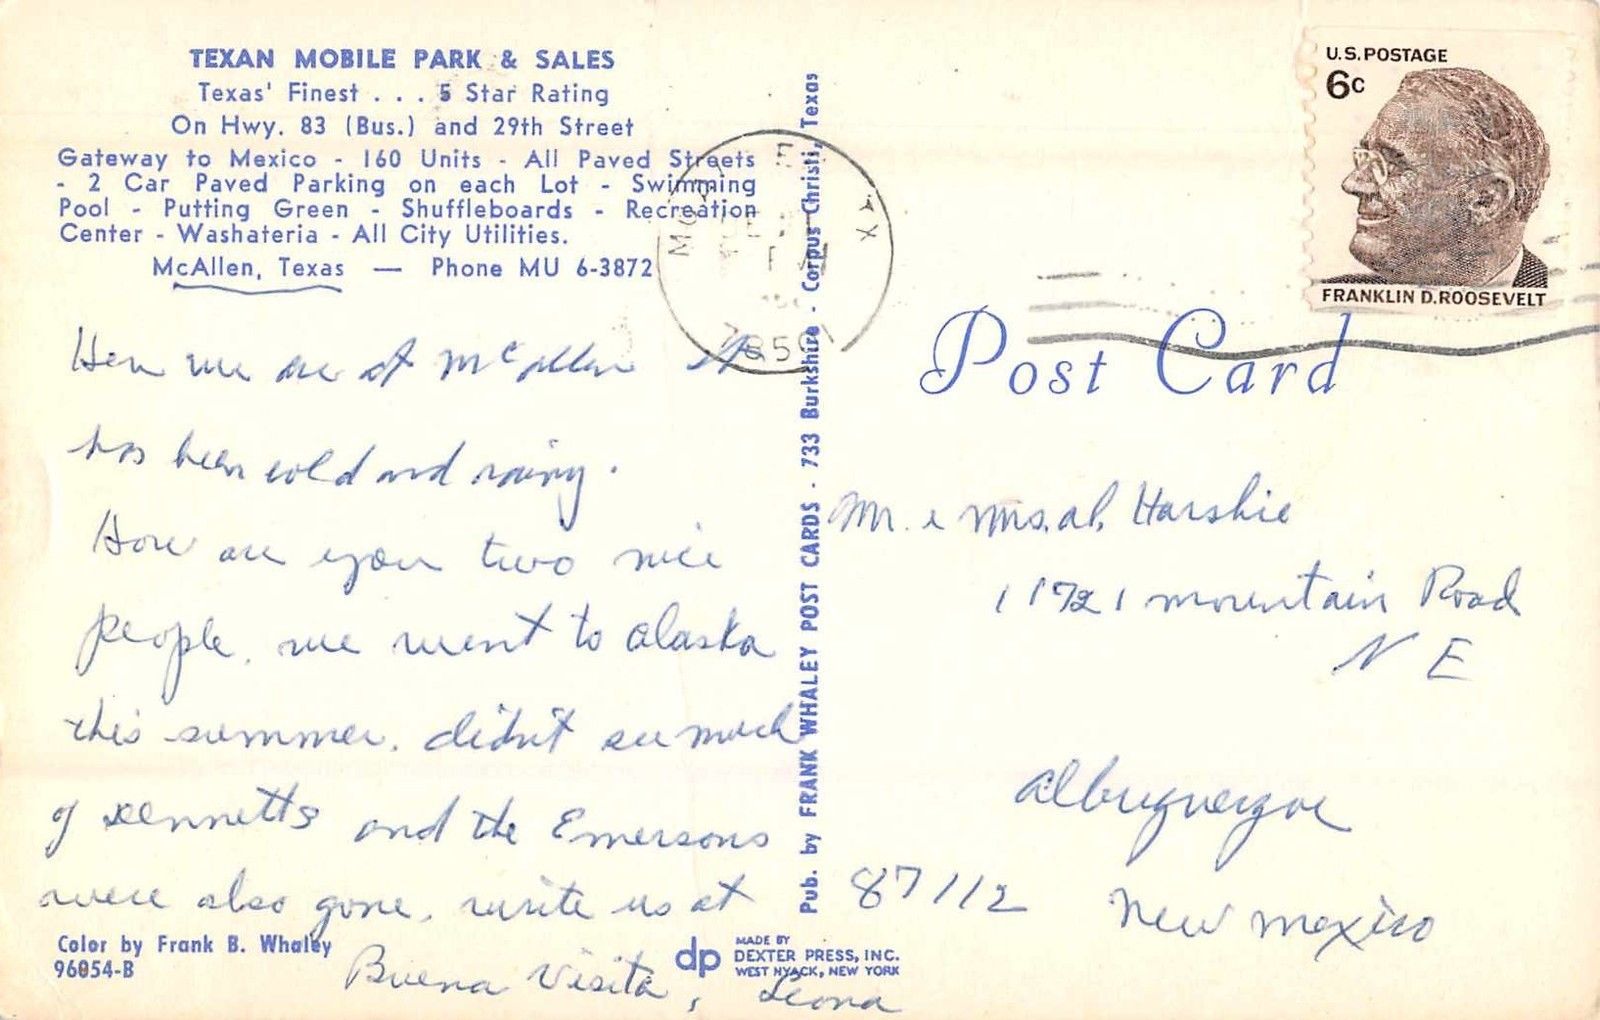 TEXAN MOBILE PARK & SALES
Texas' Finest . . . 5 Star Rating
On Hwy. 83 (Bus.) and 29th Street
Gateway to Mexico - 160 Units - All Paved Streets
- 2 Car Paved Parking on each Lot - Swimming
Pool - Putting Green - Shuffleboards - Recreation
Center - Washateria - All City Utilities.
McAllen, Texas — Phone MU 6-3872
Here we are at McAllen It
has been cold and rainy.
How are you two nice
people. we went to alaska
this summer. didn't see much
of Kennetts and the Emersons
were also gone. write us at
Buena Visita, Leona
Color by Frank B. Whaley
96054-B
dp
MADE BY
DEXTER PRESS, INC.
WEST NYACK, NEW YORK
Pub. by FRANK WHALEY POST CARDS - 733 Burkshire - Corpus Christi, Texas
78501
U.S. POSTAGE
6c
FRANKLIN D. ROOSEVELT
Post Card
Mr. & Mrs. al. Harshie
11721 mountain Road
N E
Albuquerque
87112 New Mexico